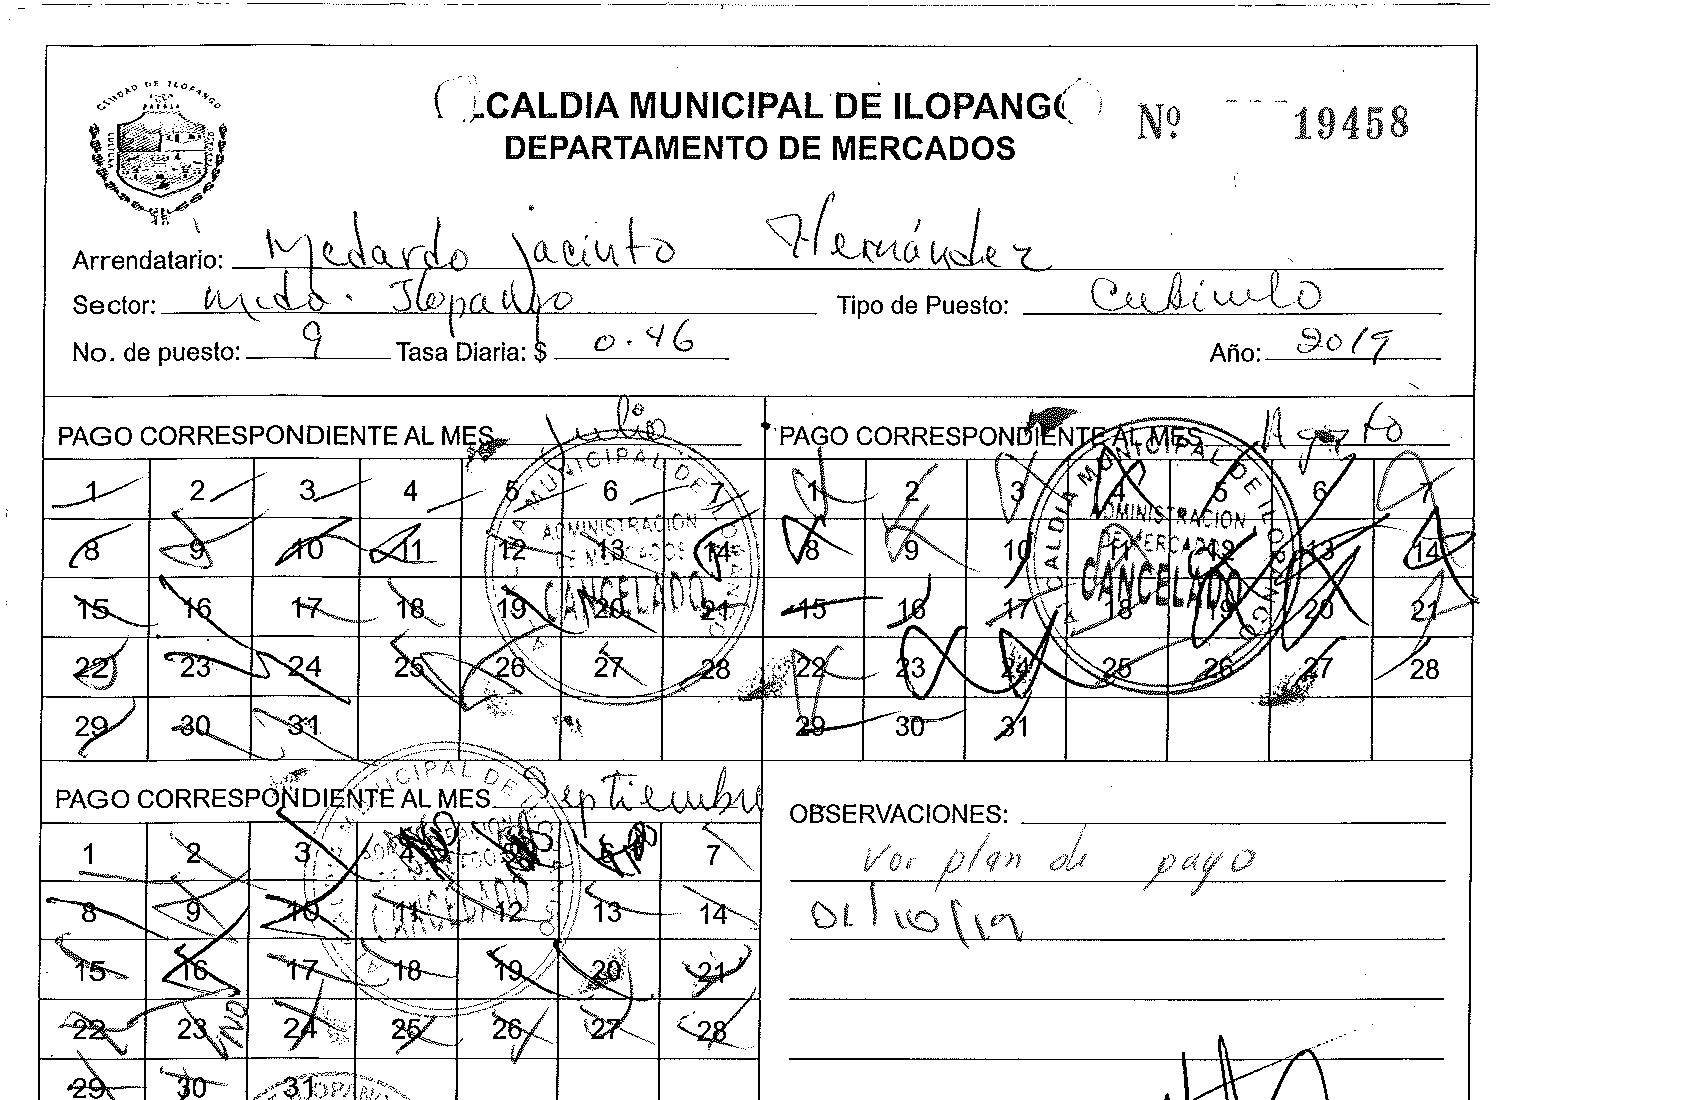 CIUDAD DE ILOPANGO
ALCALDIA MUNICIPAL DE ILOPANGO
DEPARTAMENTO DE MERCADOS
Nº 19458
Arrendatario: Medardo jacinto Hernández
Sector: Mcdo. Ilopango Tipo de Puesto: Cubiculo
No. de puesto: 9 Tasa Diaria: $ 0.46 Año: 2019
PAGO CORRESPONDIENTE AL MES Julio
1 2 3 4 5 6 7
8 9 10 11 12 13 14
15 16 17 18 19 20 21
22 23 24 25 26 27 28
29 30 31
ALCALDIA MUNICIPAL DE ILOPANGO
ADMINISTRACION
DE MERCADOS
CANCELADO
PAGO CORRESPONDIENTE AL MES Agosto
1 2 3 4 5 6 7
8 9 10 11 12 13 14
15 16 17 18 19 20 21
22 23 24 25 26 27 28
29 30 31
ALCALDIA MUNICIPAL DE ILOPANGO
ADMINISTRACION
DE MERCADOS
CANCELADO
PAGO CORRESPONDIENTE AL MES Septiembre
1 2 3 4 5 6 7
8 9 10 11 12 13 14
15 16 17 18 19 20 21
22 23 24 25 26 27 28
29 30 31
MUNICIPAL DE
CANCELADO
OBSERVACIONES:
Vor plan de pago
01/10/19